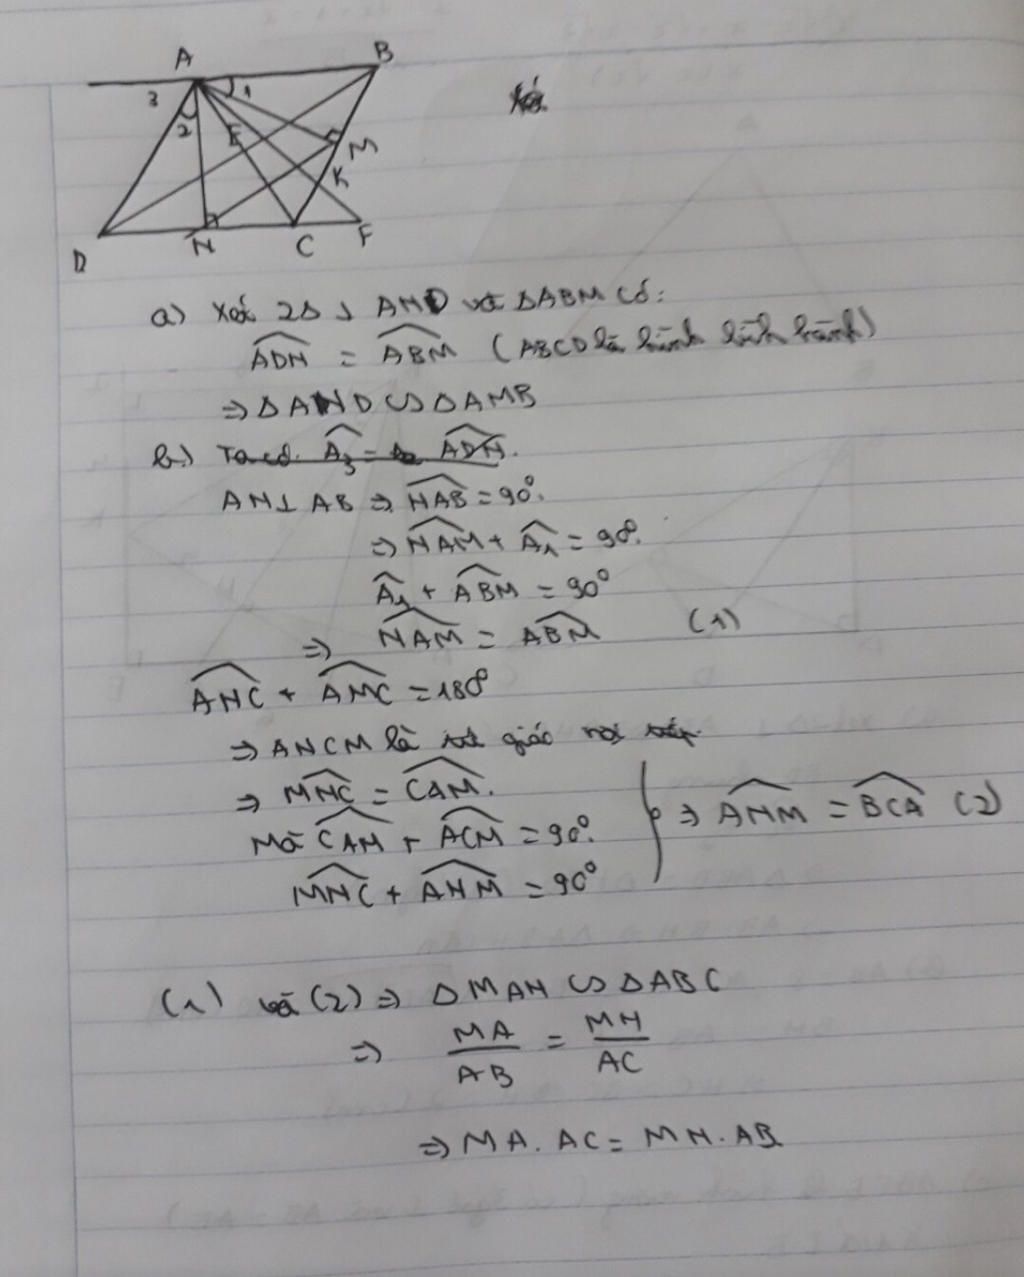 A
B
3
1
2
E
M
K
D
N
C
F
a) Xét 2Δ ⊥ AND và ΔABM có:
ADN = ABM (ABCD là hình bình hành)
⇒ ΔAND ∽ ΔAMB
b.) Ta có. A₃ = ADN.
AN⊥AB ⇒ NAB = 90°.
⇒ NAM + A₁ = 90°.
A₁ + ABM = 90°
⇒ NAM = ABM (1)
ANC + AMC = 180°
⇒ ANCM là tứ giác nội tiếp
⇒ MNC = CAM.
Mà CAM + ACM = 90°.
MNC + ANM = 90°
⇒ ANM = BCA (2)
(1) và (2) ⇒ ΔMAN ∽ ΔABC
⇒ MA/AB = MN/AC
⇒ MA. AC = MN. AB